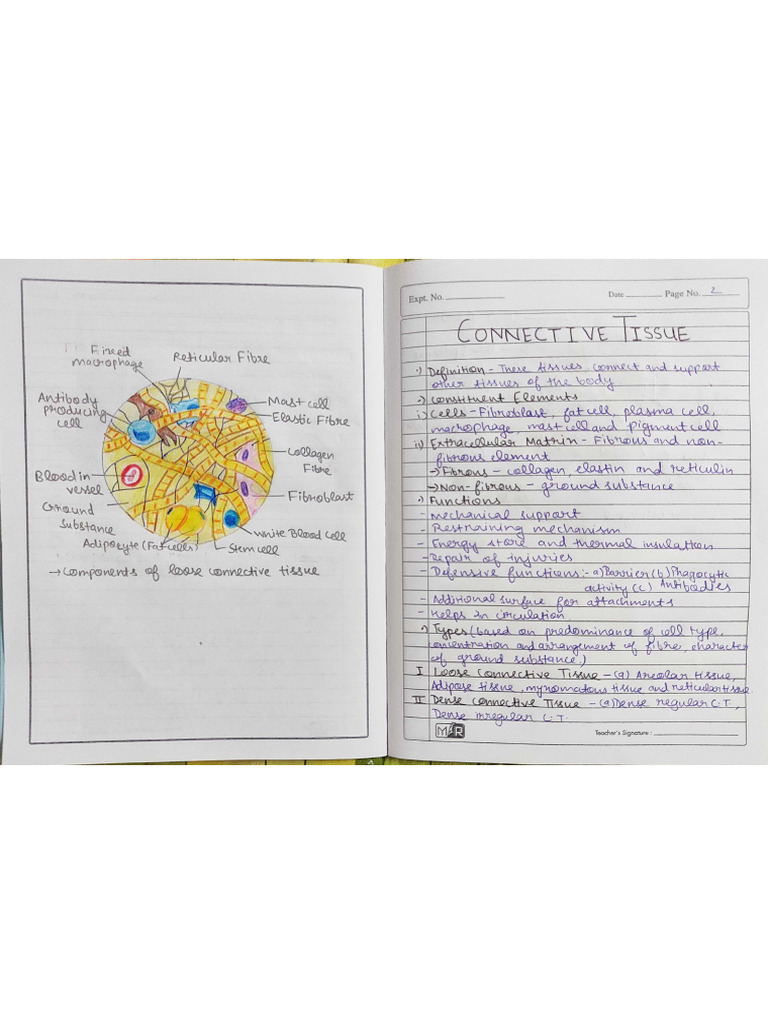 Fixed
macrophage
Reticular Fibre
Antibody
producing
cell
Mast cell
Elastic Fibre
Collagen
Fibre
Blood in
vessel
Fibroblast
Ground
Substance
White Blood cell
Adipocyte (Fat cells)
Stem cell
→ Components of loose connective tissue
Expt. No.
Date
Page No. 2
CONNECTIVE TISSUE
Definition - These tissues connect and support
other tissues of the body
Constituent Elements
i) Cells - Fibroblast, fat cell, plasma cell,
macrophage, mast cell and pigment cell
ii) Extracellular Matrix - Fibrous and non-
fibrous element
→ Fibrous - collagen, elastin and reticulin
→ Non-fibrous - ground substance
Functions
- Mechanical support
- Restraining mechanism
- Energy store and thermal insulation
- Repair of injuries
- Defensive functions :- a) Barrier (b) Phagocytic
activity (c) Antibodies
- Additional surface for attachments
- Helps in circulation
Types (based on predominance of cell type,
concentration and arrangement of fibre, character
of ground substance,)
I Loose Connective Tissue - (a) Areolar tissue,
Adipose tissue, myxomatous tissue and reticular tissue
II Dense Connective Tissue - (a) Dense regular C.T,
Dense irregular C.T.
MR
Teacher's Signature :